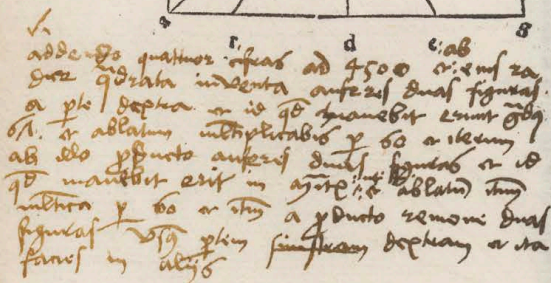 a r d e g
v.
addendo quattuor cifras ad 4500 et eius ra
dice q̄drata inventa auferes duas figuras ab
a p̱te dextra et id qđ manebit erunt g̃dus
et ablatum ml̄tiplicabis ꝑ 60 et iterum
ab illo ꝓducto auferes duas figuras et id
qđ manebit erit in et ablatū itm̄
ml̄tica ꝑ 60 et itm̄ a ꝓducto remove duas
figuras p̱tem sinistram dextram et ita
facies in aliis